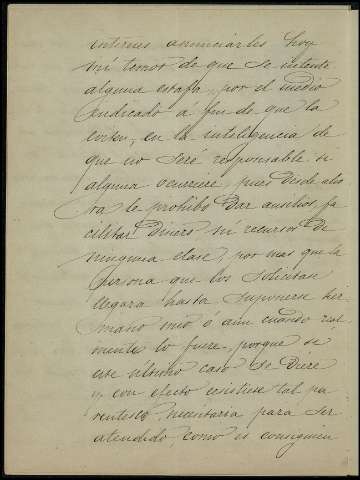 anunciarles hoy
mi temor de que se intente
alguna estafa, por el medio
indicado a fin de que la
eviten, en la inteligencia de
que no seré responsable si
alguna ocurriere, pues desde aho
ra le prohibo dar ausilios, fa
cilitar dinero ni recursos de
ninguna clase, por mas que la
persona que los solicitase
llegara hasta suponerse her
mano mio ó aun cuando real
mente lo fuere, porque si
este último caso se diere
y con efecto existiese tal pa
rentesco, necesitaria para ser
atendido, como es consiguien